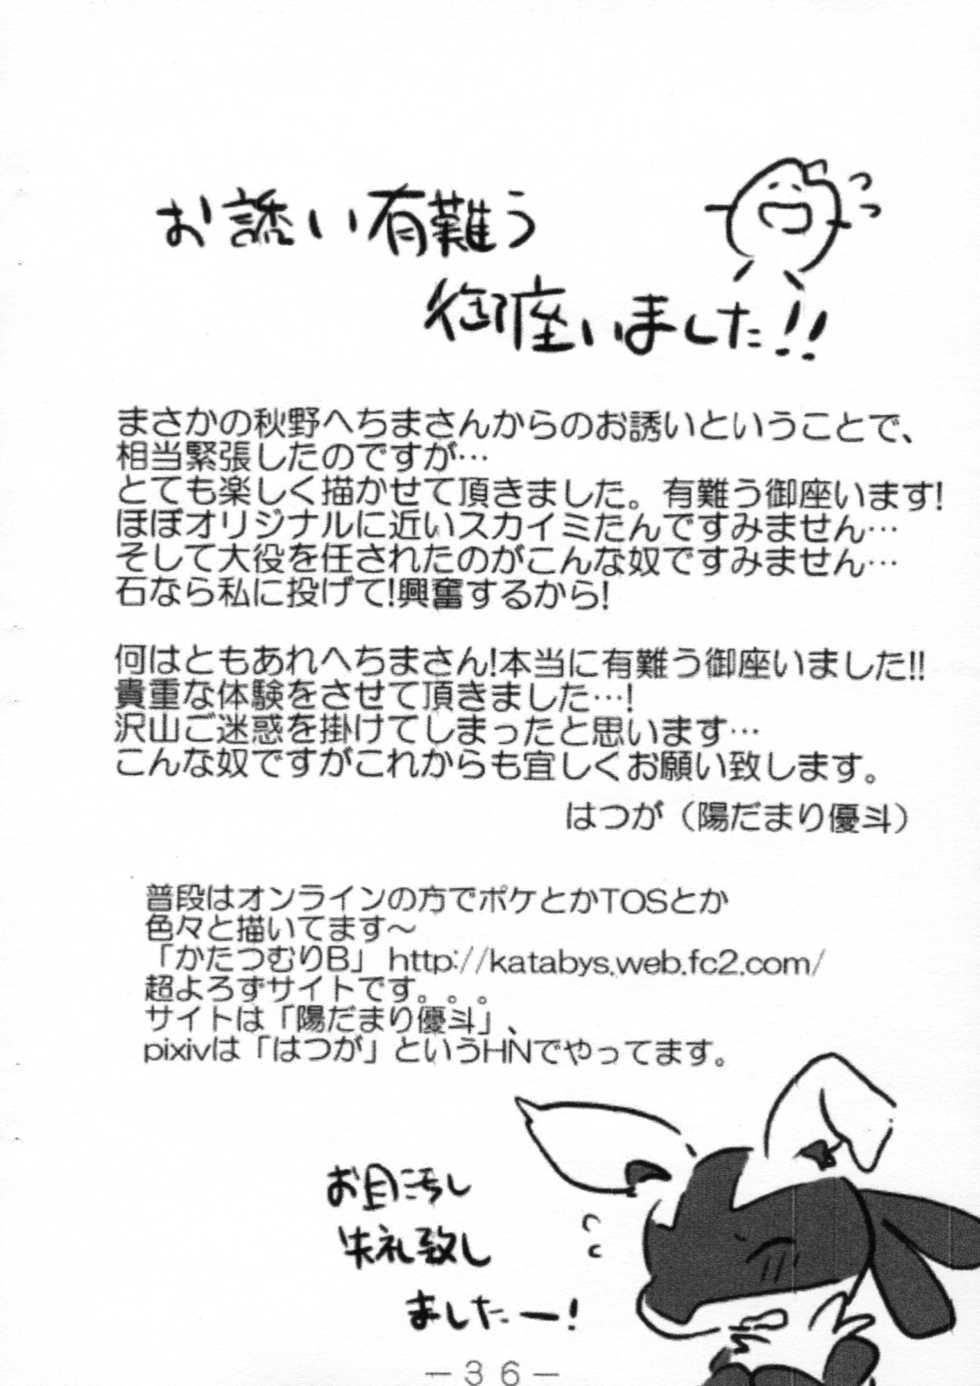 お誘い有難う
御座いました!!
まさかの秋野へちまさんからのお誘いということで、
相当緊張したのですが…
とても楽しく描かせて頂きました。有難う御座います!
ほぼオリジナルに近いスカイミたんですみません…
そして大役を任されたのがこんな奴ですみません…
石なら私に投げて!興奮するから!
何はともあれへちまさん!本当に有難う御座いました!!
貴重な体験をさせて頂きました…!
沢山ご迷惑を掛けてしまったと思います…
こんな奴ですがこれからも宜しくお願い致します。
はつが（陽だまり優斗）
普段はオンラインの方でポケとかTOSとか
色々と描いてます～
「かたつむりB」 http://katabys.web.fc2.com/
超よろずサイトです。。。
サイトは「陽だまり優斗」、
pixivは「はつが」というHNでやってます。
お目汚し
失礼致し
ましたー!
－36－